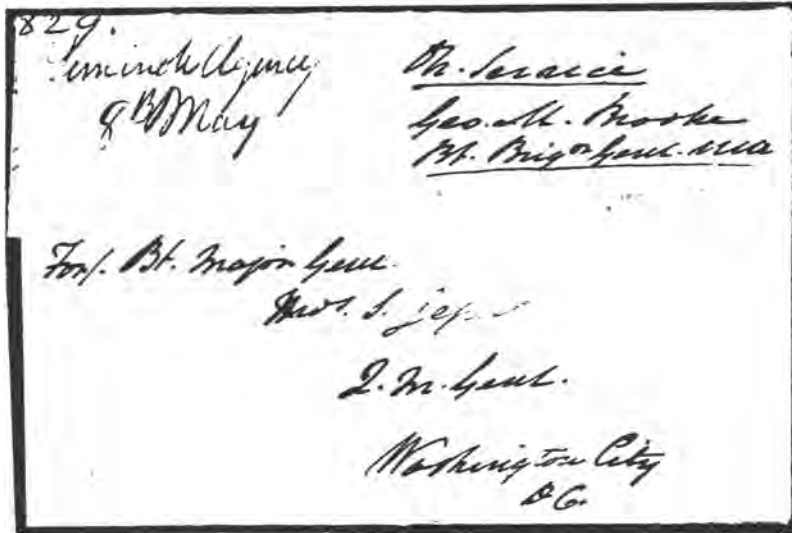 829.
Seminole Agency
8th May
On Service
Geo. M. Brooke
Bt. Brigr Genl. USA
For/. Bt. Major Genl.
Thos. S. Jes
Q. M. Genl.
Washington City
D C.